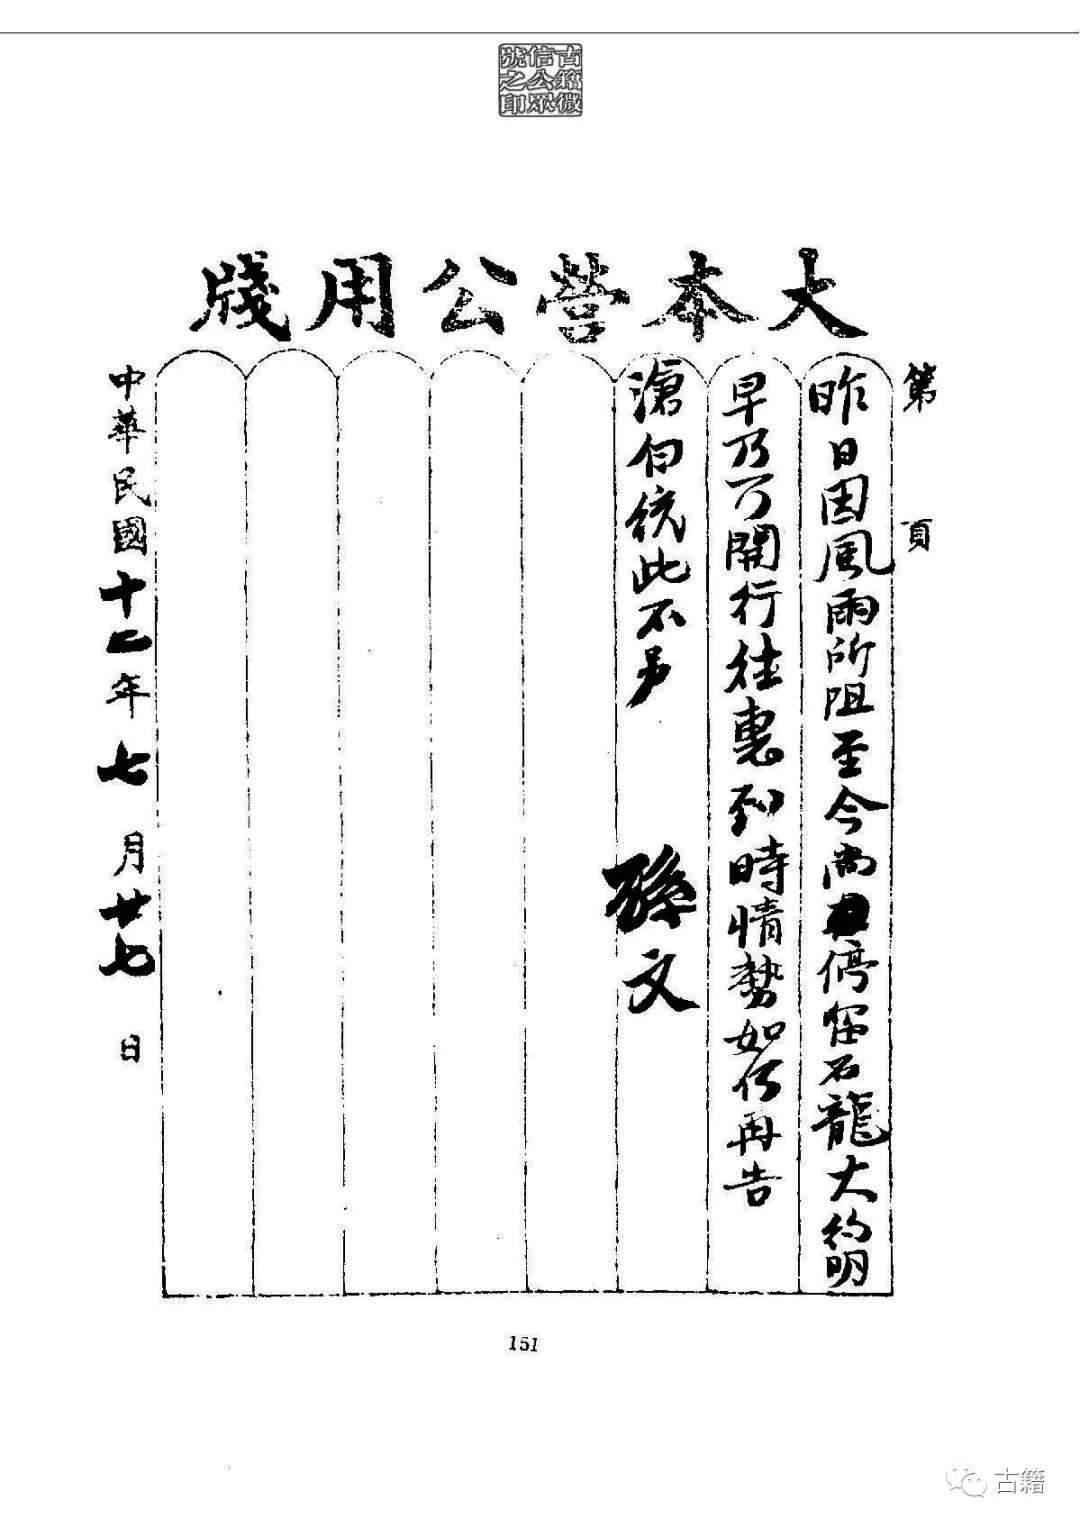 古籍微
信公眾
號之印
大本營公用牋
第 頁
昨日因風雨所阻至今尚停留石龍大約明
早乃可開行往惠到時情勢如何再告
滄伯統此不另 孫文
中華民國十二年七月廿七日
151
古籍